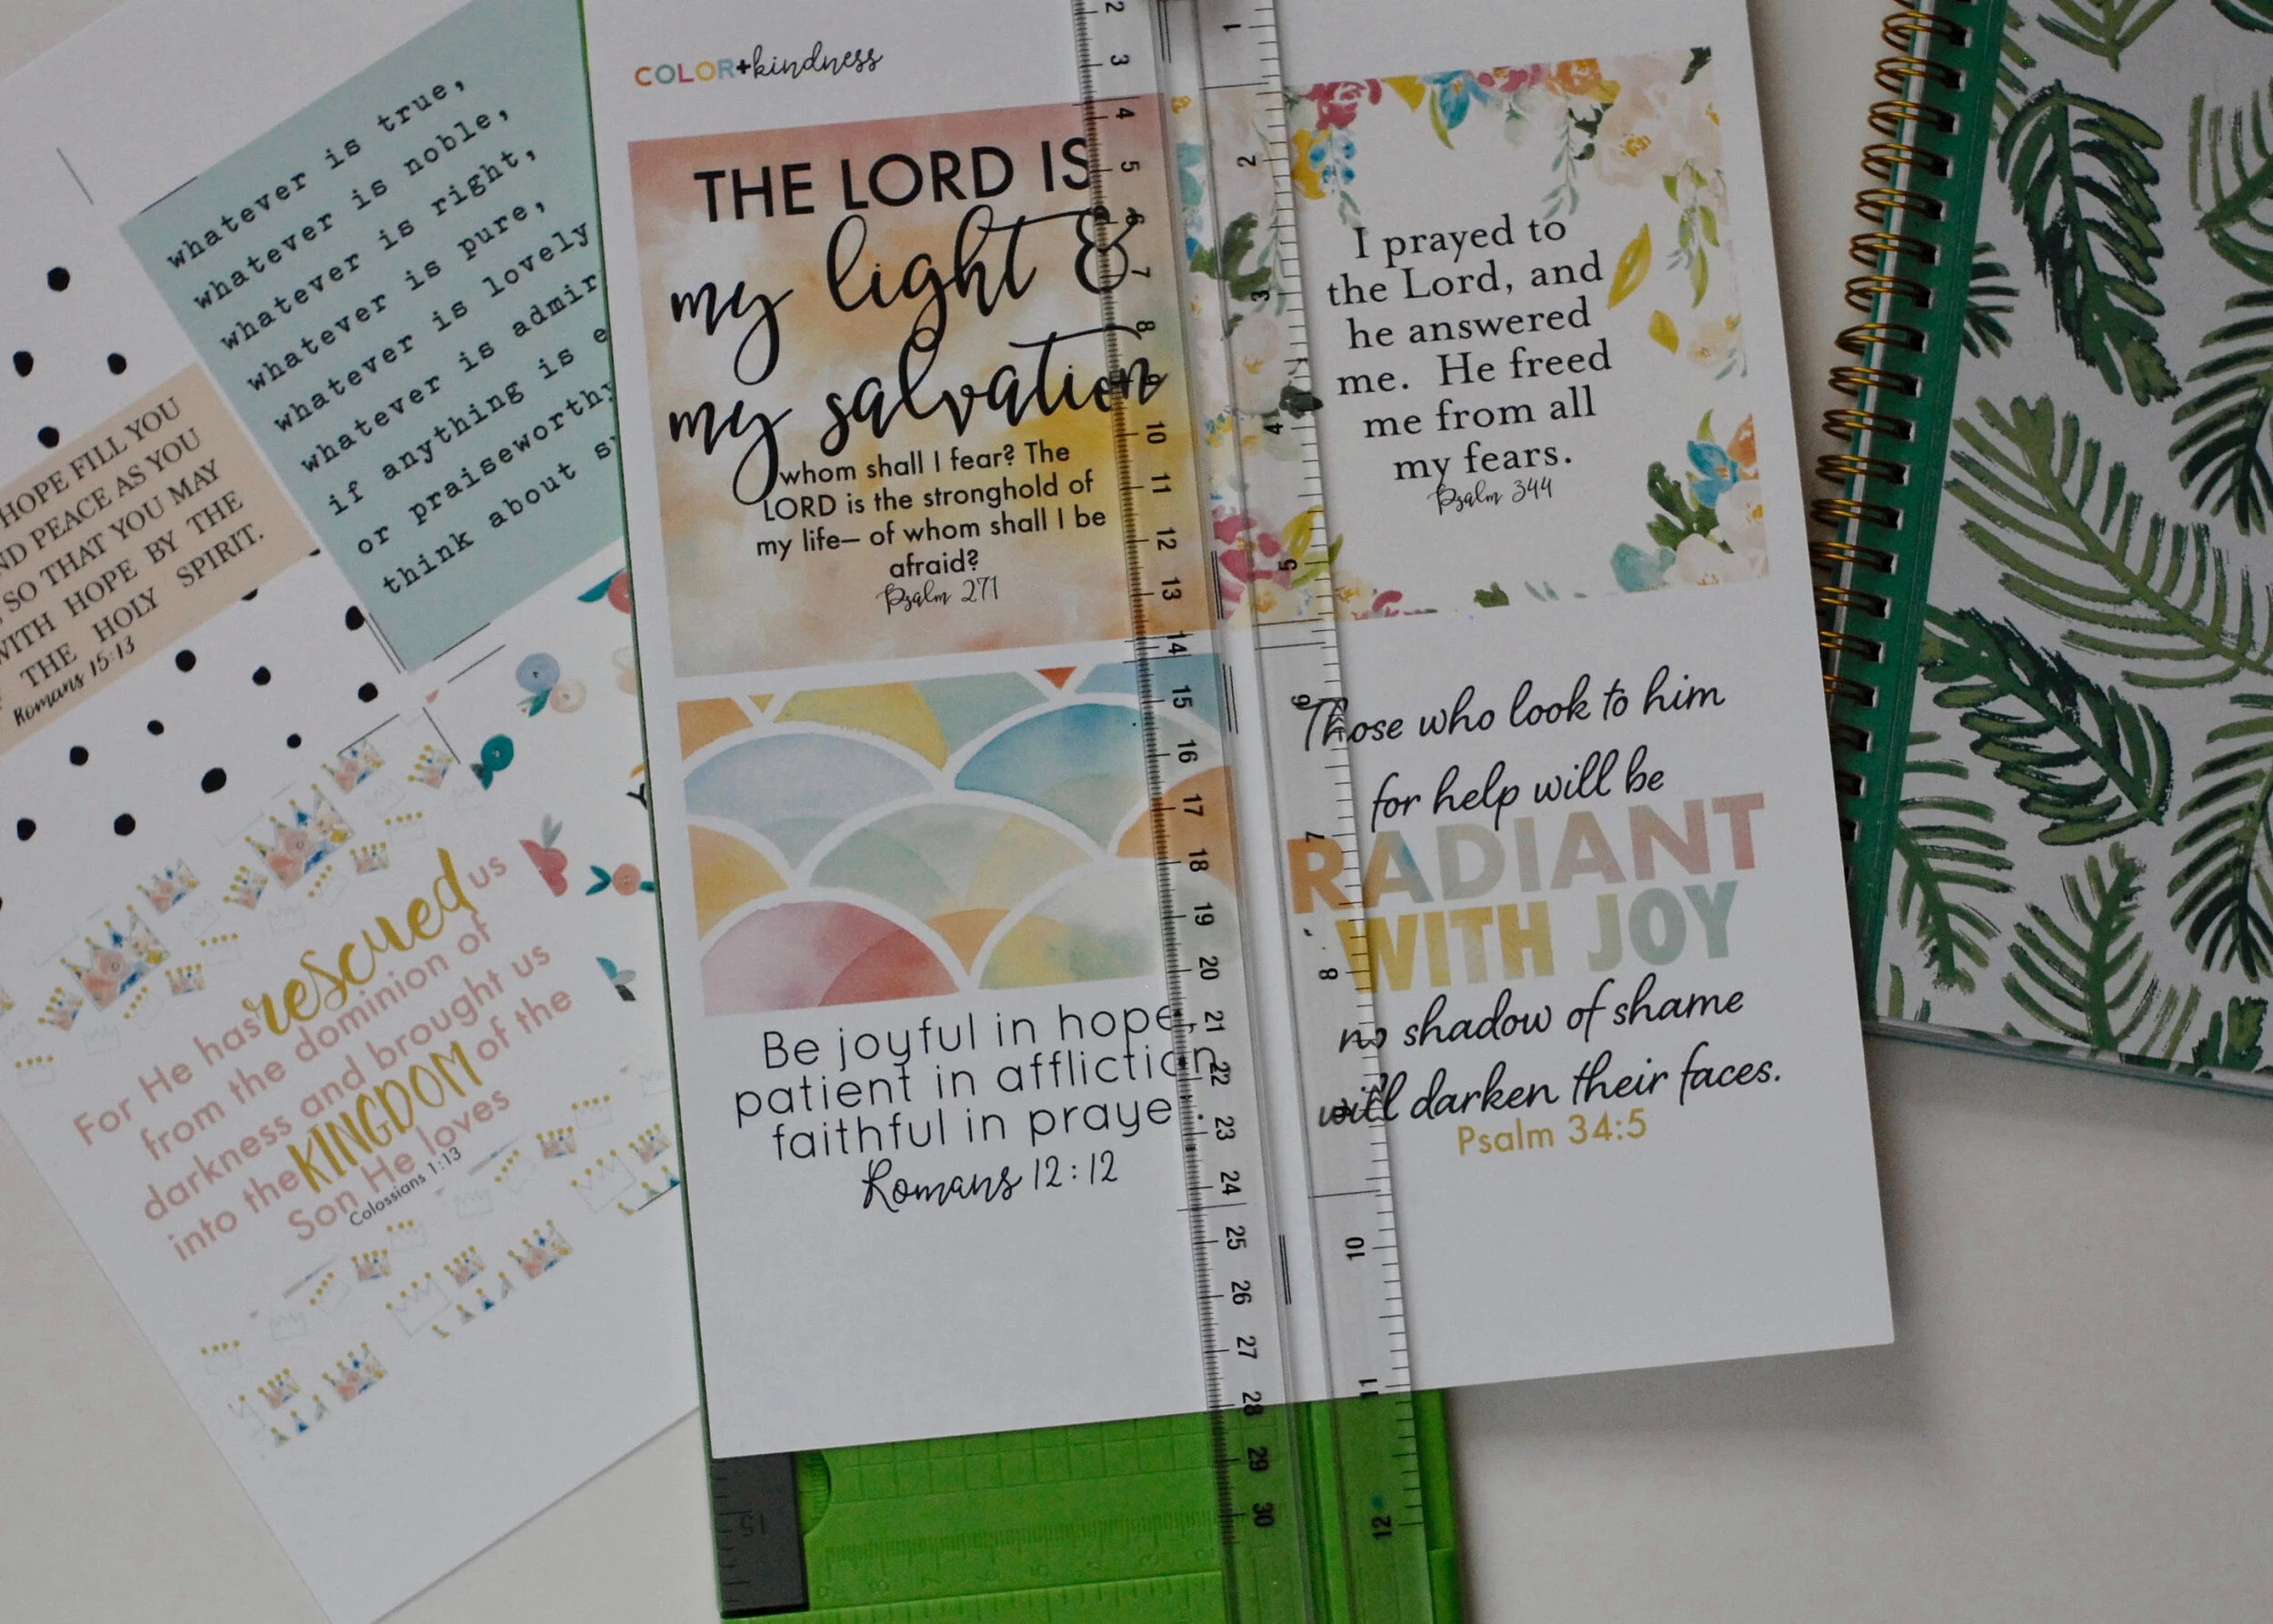 COLOR+kindness
THE LORD IS
my light &
my salvation
whom shall I fear? The
LORD is the stronghold of
my life– of whom shall I be
afraid?
Psalm 271
I prayed to
the Lord, and
he answered
me. He freed
me from all
my fears.
Psalm 344
Be joyful in hope,
patient in affliction,
faithful in praye
Romans 12:12
Those who look to him
for help will be
RADIANT
WITH JOY
no shadow of shame
will darken their faces.
Psalm 34:5
whatever is true,
whatever is noble,
whatever is right,
whatever is pure,
whatever is lovely
whatever is admir
if anything is e
or praiseworthy
think about
HOPE FILL YOU
ND PEACE AS YOU
SO THAT YOU MAY
WITH HOPE BY THE
THE HOLY SPIRIT.
Romans 15:13
For He has rescued us
from the dominion of
darkness and brought us
into the KINGDOM of the
Son He loves
Colossians 1:13
2
3
4
5
6
7
8
9
10
11
12
13
14
15
16
17
18
19
20
21
22
23
24
25
26
27
28
29
30
1
2
3
4
5
6
7
8
10
11
12
15